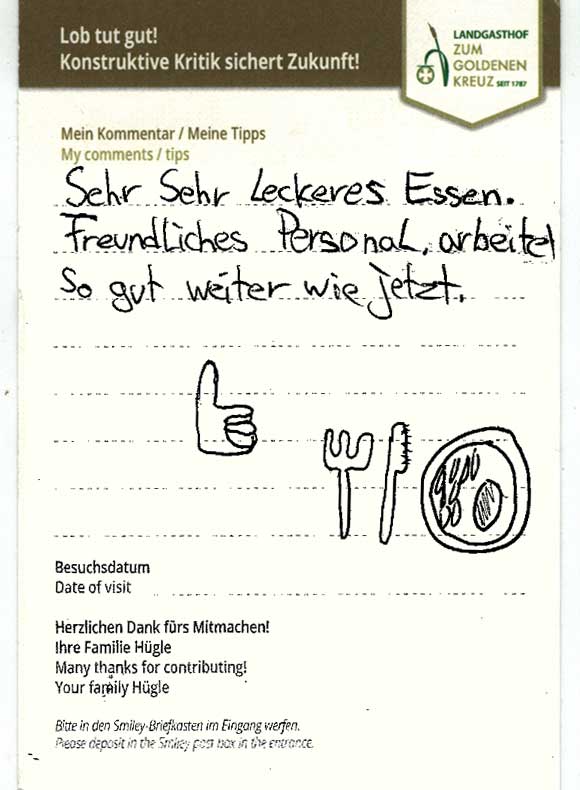 Lob tut gut!
Konstruktive Kritik sichert Zukunft!
LANDGASTHOF
ZUM
GOLDENEN
KREUZ SEIT 1787
Mein Kommentar / Meine Tipps
My comments / tips
Sehr Sehr Leckeres Essen.
Freundliches Personal, arbeitet
So gut weiter wie jetzt.
Besuchsdatum
Date of visit
Herzlichen Dank fürs Mitmachen!
Ihre Familie Hügle
Many thanks for contributing!
Your family Hügle
Bitte in den Smiley-Briefkasten im Eingang werfen.
Please deposit in the Smiley post box in the entrance.